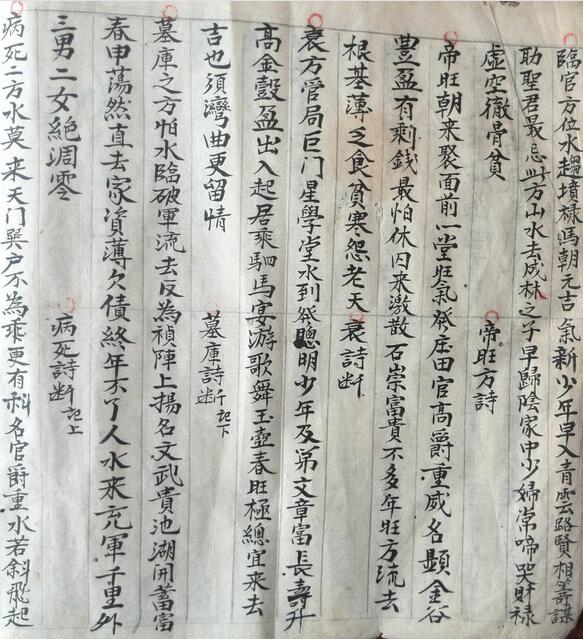 臨官方位水趨墳祿馬朝元吉氣新少年早入青雲路賢相籌謀
助聖君最忌此方山水去成林之子早歸陰家中少婦常啼哭財祿
虛空徹骨貧
帝旺方詩
帝旺朝来聚面前一堂旺氣發庄田官高爵重威名顯金谷
豊盈有剩錢最怕休囚来激散石崇富貴不多年旺方流去
根基薄乏食貧寒怨老天
衰詩断
衰方管局巨门星學堂水到發聰明少年及第文章富長壽升
高金穀盈出入起居乘駟馬宴游歌舞玉壺春旺極總宜来去
吉也須灣曲更留情
墓庫詩断記下
墓庫之方怕水臨破軍流去反為禎陣上揚名文武貴池湖開蓄富
春申蕩然直去家資薄欠債終年不了人水来充軍千里外
三男二女絶凋零
病死詩断記上
病死二方水莫来天门巽户不為乖更有科名官爵重水若斜飛起